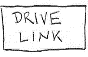 DRIVE
LINK